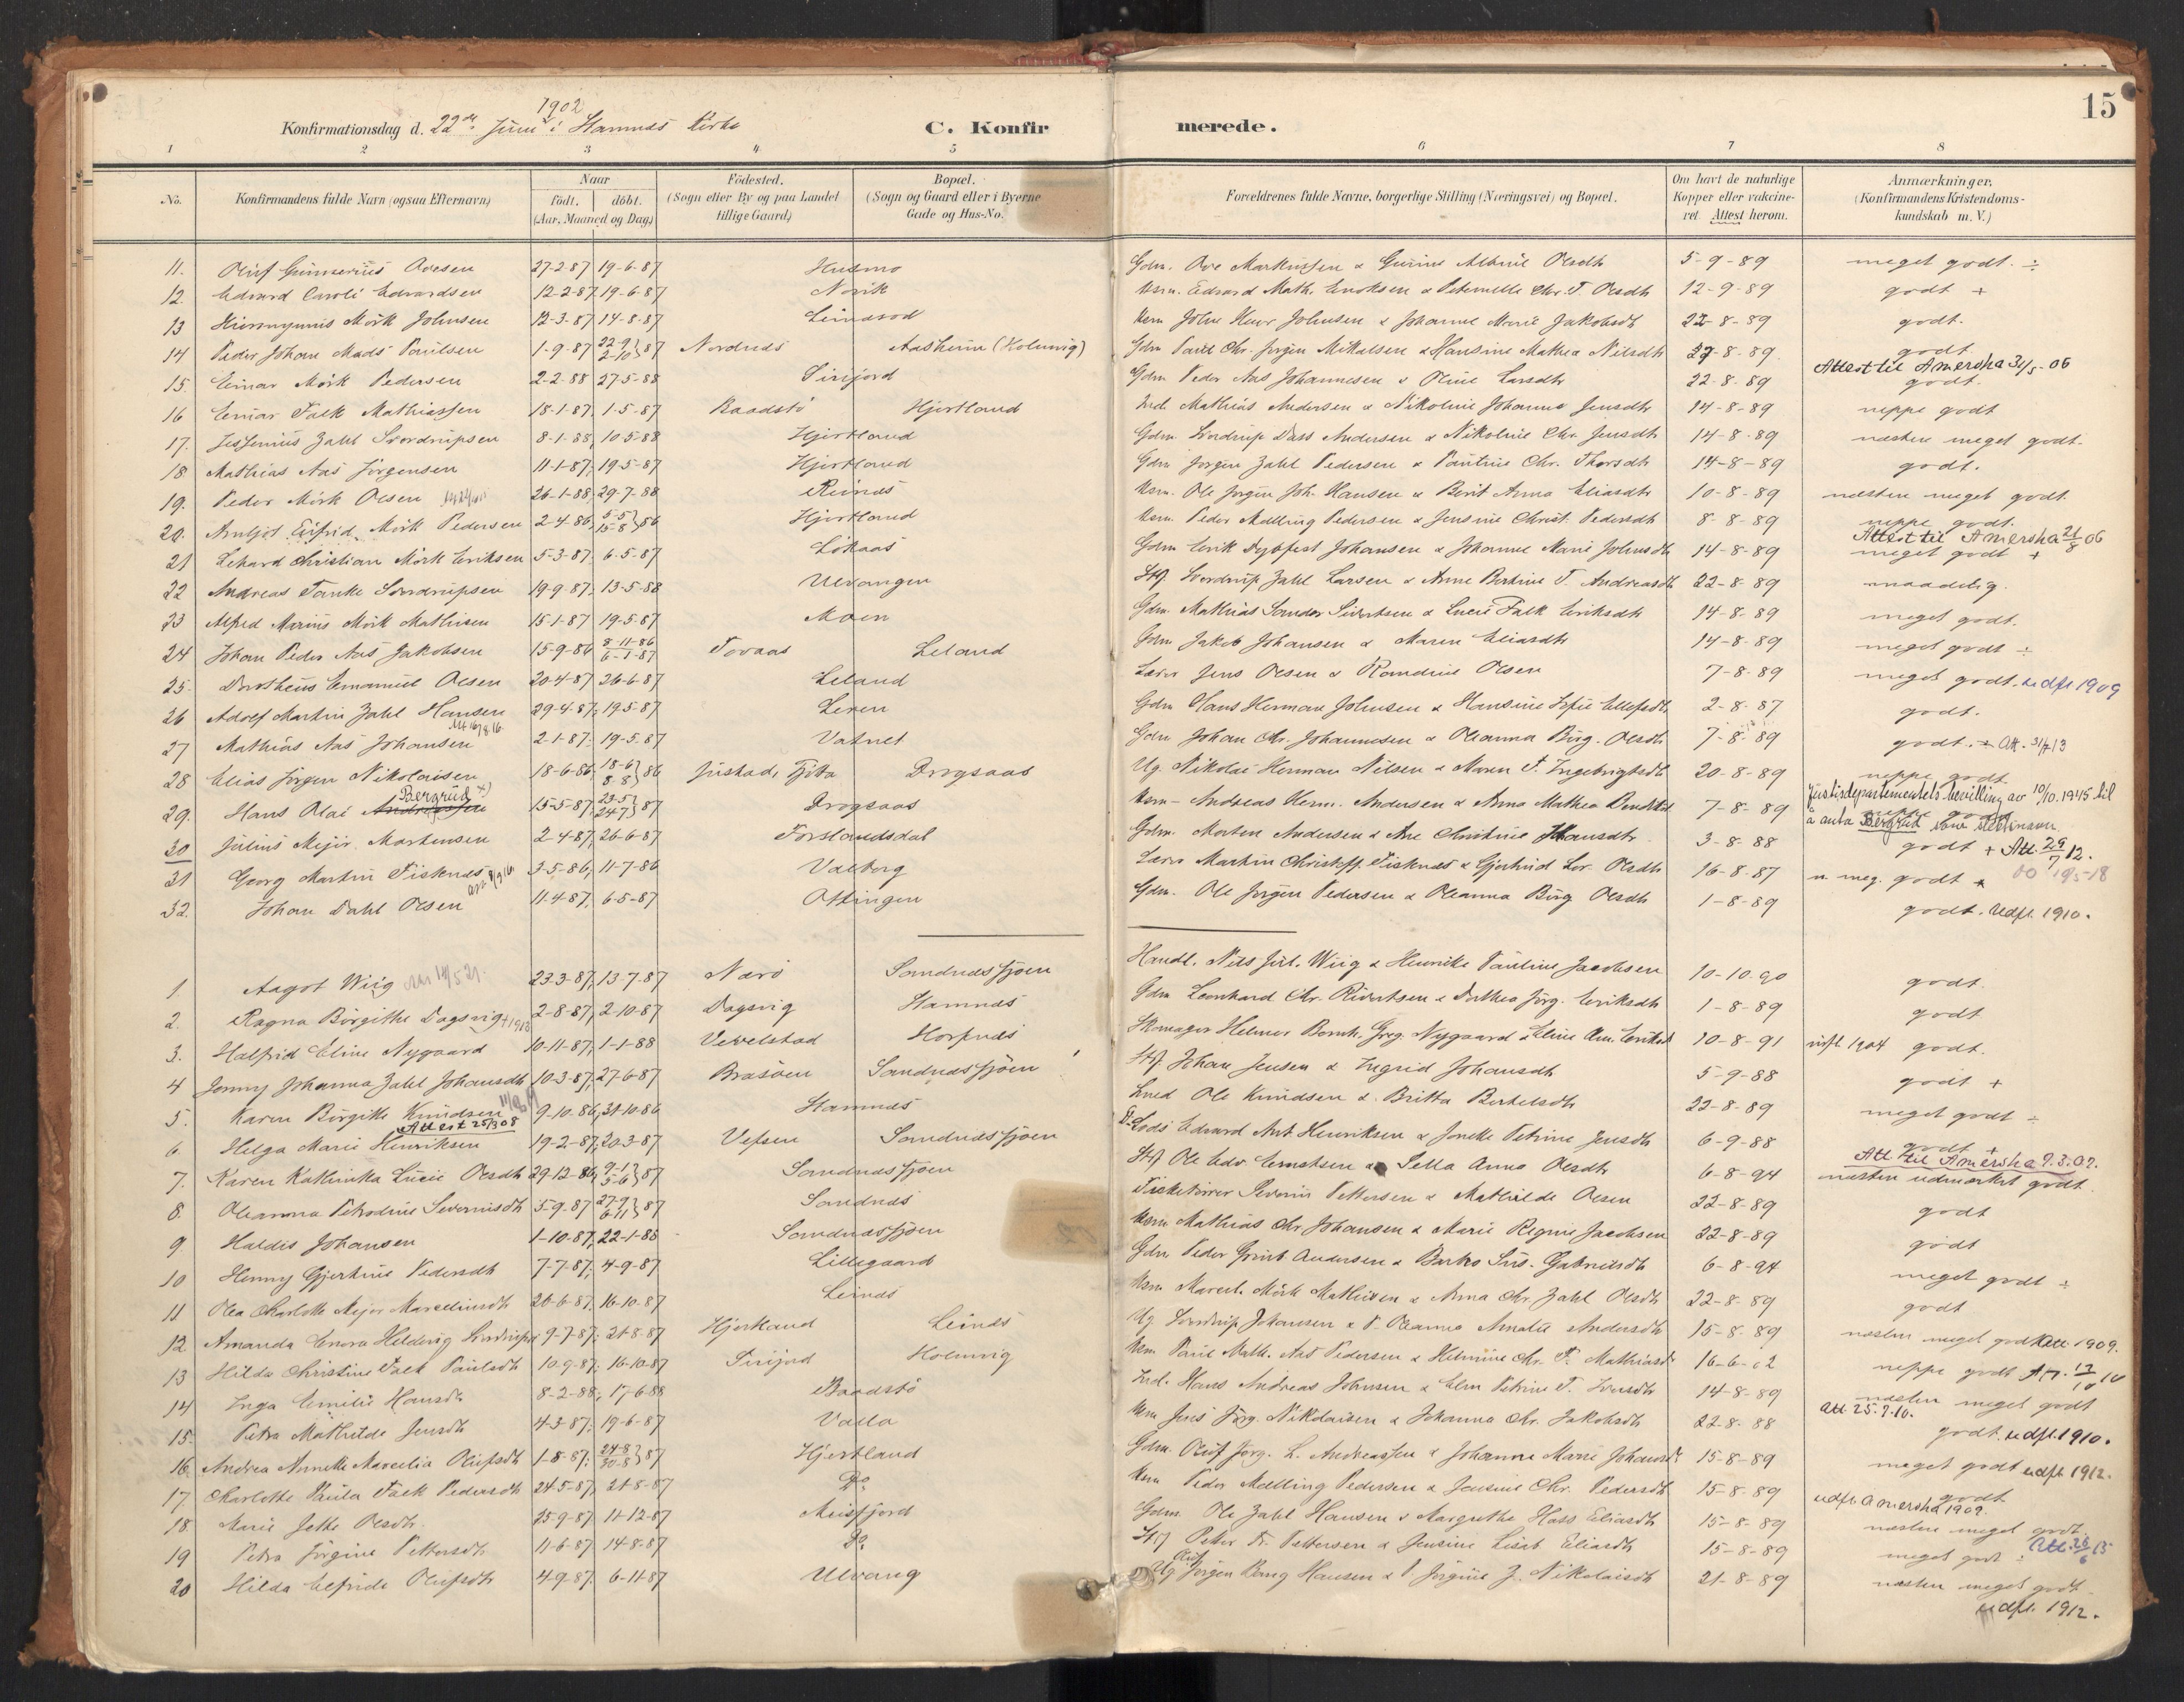 15
1902
Konfirmationsdag d. 22de Juni i Hamnes Kirke
C. Konfir merede.
1 2 3 4 5 6 7 8
No.
Konfirmandens fulde Navn (ogsaa Efternavn)
Naar
født. døbt.
(Aar, Maaned og Dag)
Fødested.
(Sogn eller By og paa Landet
tillige Gaard)
Bopæl.
(Sogn og Gaard eller i Byerne
Gade og Hus-No.
Forældrenes fulde Navne, borgerlige Stilling (Næringsvei) og Bopæl.
Om havt de naturlige
Kopper eller vakcine-
ret Attest herom.
Anmærkninger.
(Konfirmandens Kristendoms-
kundskab m. V.)
11. Oluf Gunnerius Ovesen 27-2-87 19-6-87 Husmo Gdm. Ove Martinsen & 5-9-89 meget godt. ÷
12. Edvard Caroli Edvardsen 12-2-87 19-6-87 Norik Husm. Edvard Math. Enoksen & Peternelle Chr. T. Olsdtr 12-9-89 godt +
13 Hieronymus Mörk Johnsen 12-3-87 14-8-87 Leinesod Husm Johanne Marie Jakobsdtr 22-8-89 godt.
14 Peder Johan Mads Paulsen 1-9-87 22-9 2-10}87 Nordnes Aasheim (Holmvig) Gdm Paul Chr. Jörgen Mikalsen & Hansine Mathea Nilsdtr 27-8-89. godt
15. Einar Mörk Pedersen 2-2-88 27-5-88 Sirifjord Gdm Peder Aas Johannesen & Oline Larsdtr 22-8-89 Attest til Amerika 31/5-06 godt.
16 Einar Falk Mathiassen 18-1-87 1-5-87 Baadstö Hjortland Ind. Mathias Andersen & Nikoline Johanna Jensdtr 14-8-89 neppe godt
17. Zahl Sverdrupsen 8-1-88, 10-5-88 Hjortland Gdm. Sverdrup Dass Andersen & Nikoline Chr. Jensdtr 14-8-89 næsten meget godt.
18. Mathias Aas Jörgensen 11-1-87; 19-5-87 Hjortland Gdm Jörgen Zahl Pedersen & Pauline Chr. Thorsdtr 14-8-89 godt.
19. Peder Mörk Olsen 26-1-88, 29-7-88 Reines Husm. Ole Jörgen Joh. Hansen & Berit Anna Eliasdtr 10-8-89 næsten meget godt.
20. Arnljot Eifrid. Mörk Pedersen 2-4-86, 5-5 15-8}86 Hjortland Husm. Peder Mælling Pedersen & Jensine Christ. Pedersdtr 8-8-89 neppe godt.
21 Christian Mörk Eriksen 5-3-87. 6-5-87 Lökaas Gdm Erik Dybfest Johansen & Johanne Marie Johnsdtr 14-8-89 Attest til Amerika 21/8 06 meget godt +
22 Andreas Tanke Sverdrupsen 19-9-87; 13-5-88 Ulvangen Stf. Sverdrup Zahl Larsen & Anne Berthine T. Andreasdtr 22-8-89 maadelig.
23 Alfred Marius Mörk Mathisen 15-1-87 19-5-87 Moen Gdm. Mathias Sander Sivertsen & Lucie Falk Eriksdtr 14-8-89 meget godt.
24 Johan Peder Aas Jakobsen 15-9-86 8-11-86 6-1-87 Tovaas Leland Gdm Jakob Johansen & Maren Eliasdtr 14-8-89 meget godt ÷
25. Dorotheus Emanuel Olsen 20-4-87 26-6-87 Leland Lærer Jens Olsen & Olsen 7-8-89 meget godt. udfl 1909
26 Adolf Martin Zahl Hansen 29-4-87; 19-5-87 Leren Gdm Hans Herman Johnsen & Hansine Sofie Ellefsdtr 2-8-87 godt.
27 Mathias Aas Johansen 2-1-87; 19-5-87 Vatnet Gdm Johan Chr. Johannesen & Oleanna Birg. Olsdtr 7-8-89 godt. ÷ Att. 31/7 13
28 Elias Jörgen Nikolaisen 18-6-86 18-6 8-8}86 Tjöta Drogsaas Ug. Nikolai Herman Nilsen & Maren F. Ingebrigtsdtr 20-8-89 neppe godt
29. Hans Olai Andreassen Bergrud x) 15-5-87, 23-5 24-7}87 Drogsaas Husm Andreas Herm. Andersen & Anna Mathea 7-8-89 Justisdepartementets bevilling av 10/10.1945 til å anta Bergrud som slektsnavn
30 Julius Mejer Mortensen 2-4-87, 26-6-87 Forslandsdal Gdm. Morten Andersen & Ane Christine Hansdtr 3-8-88 godt + Att. 29/7 12.
31 Georg Martin Fisknes 3-5-86, 11-7-86 Valberg Lærer Martin Christoff. Fisknes & Gjertrud Lov. Olsdtr 16-8-87 n. meg. godt +
32. Johan Dahl Olsen 11-4-87. 6-5-87 Offingen Gdm. Ole Jörgen Pedersen & Oleanna Birg Olsdtr 1-8-89 godt. Udfl. 1910.
1 Aagot Wiig 23-3-87, 13-7-87 Nærö Sandnessjöen Handl. Nils Jul. Wiig & Henrikke Pauline Jacobsen 10-10-90 godt.
2. Ragna Birgithe Dagsvig 2-8-87, 2-10-87 Dagsvig Hamnes Gdm Leonhard Chr. Rivertsen & Dorthea Jörg. Eriksdtr 1-8-89 godt
3. Halfrid Eline Nygaard 10-11-87, 1-1-88 Vevelstad Horfnes Skomager Helmer Bernh. Greg. Nygaard & Eline Am. 10-8-91 1904 godt.
4 Jenny Johanna Zahl Johansdtr 10-3-87; 27-6-87 Brasöen Sandnessjöen Stf. Johan Jensen & Ingrid Johansdtr 5-9-88 godt +
5. Karen Birgitte Knudsen 9-10-86, 31-10-86 Hamnes Ole Knudsen & Britta Bertelsdtr 22-8-89 meget godt ÷
Attest 25/3 08
6 Helga Marie Henriksen 19-2-87, 20-3-87 Vefsen Sandnessjöen Lods Edvard Ant Henriksen & Petrine Jensdtr 6-9-88 godt +
7. Karen Kathinka Lucie Olsdtr 29-12-86 9-1 5-6}87 Sandnessjöen Stf Ole Edv. Erntsen & Sella Anna Olsdtr 6-8-94 Att til Amerika 9.3.07. næsten udmærket godt.
8. Oleanna Petrodine Severinsdtr 5-9-87 27-9 6-11}87 Sandnes Severin Pettersen & Mathilde Olsen 22-8-89 godt
9 Haldis Johansen 1-10-87; 22-1-88 Sandnessjöen Husm Mathias Chr. Johansen & Marie Regine Jacobsen 22-8-89 godt
10 Henny Gjertine Pedersdtr 7-7-87; 4-9-87 Lillegaard Gdm Peder Grint Andersen & Barbro Sus. Gabrielsdtr 6-8-94 meget godt ÷
11 Olea Charlotte Mejer Marselinsdtr 26-6-87. 16-10-87 Leines Husm. Marcel. Mörk Mathisen & Anna Chr. Zahl Olsdtr 22-8-89 godt
12 Amanda Enora Heldevig 9-7-87; 21-8-87 Hjortland Leines Ug. Sverdrup Johansen & Oleanna Amalie Andersdtr 15-8-89 næsten meget godt Att. 1909.
13 Hilda Christine Falk Paulsdtr 10-9-87; 16-10-87 Sirifjord Holmvig Husm Paul Math. Aas Pedersen & Helmine Chr. F. Mathiasd. 16-6-02 neppe godt Att. 13/10 10
14 Inga Emilie Hansdtr 8-2-88; 17-6-88 Baadstö Ind. Hans Andreas Johnsen & Elen Petrine T. 14-8-89 næsten meget godt
15. Petra Mathilde Jensdtr 4-3-87; 19-6-87 Valla Husm Jens Jörg. Nikolaisen & Johanna Chr. Jakobsdtr 22-8-88 Att 25.7.10. godt. udfl. 1910.
16. Andrea Annette Marcelia Olufsdtr 1-8-87; 24-8 30-8}87 Hjortland Gdm. Oluf Jörg. L. Andreassen & Johanna Marie Johansd. 15-8-89 meget godt udfl. 1912.
17. Charlotte Paula Falk Pedersdtr 24-5-87, 21-8-87 Do. Husm Peder Mælling Pedersen & Jensine Chr. Pedersdtr 15-8-89 godt
18. Marie Jette Olsdtr. 25-9-87 11-12-87 Meisfjord Gdm. Ole Zahl Hansen & Margrethe Hass Eliasdtr 15-8-89 udfl. Amerika 1909. næsten meget godt.
19 Petra Jörgine Pettersdtr 11-6-87 14-8-87 Do. Stf Petter Fr. Pettersen & Jensine Lisab. Eliasdtr 15-8-89 meget godt ÷ Att. 26/6 15
20 Hilda Elfride Olufsdtr 4-9-87. 6-11-87 Ulvang Ug Oluf Jörgen Bang Hansen & Jörgine Z. Nikolaisdtr 21-8-89 næsten meget godt.
udfl. 1912.